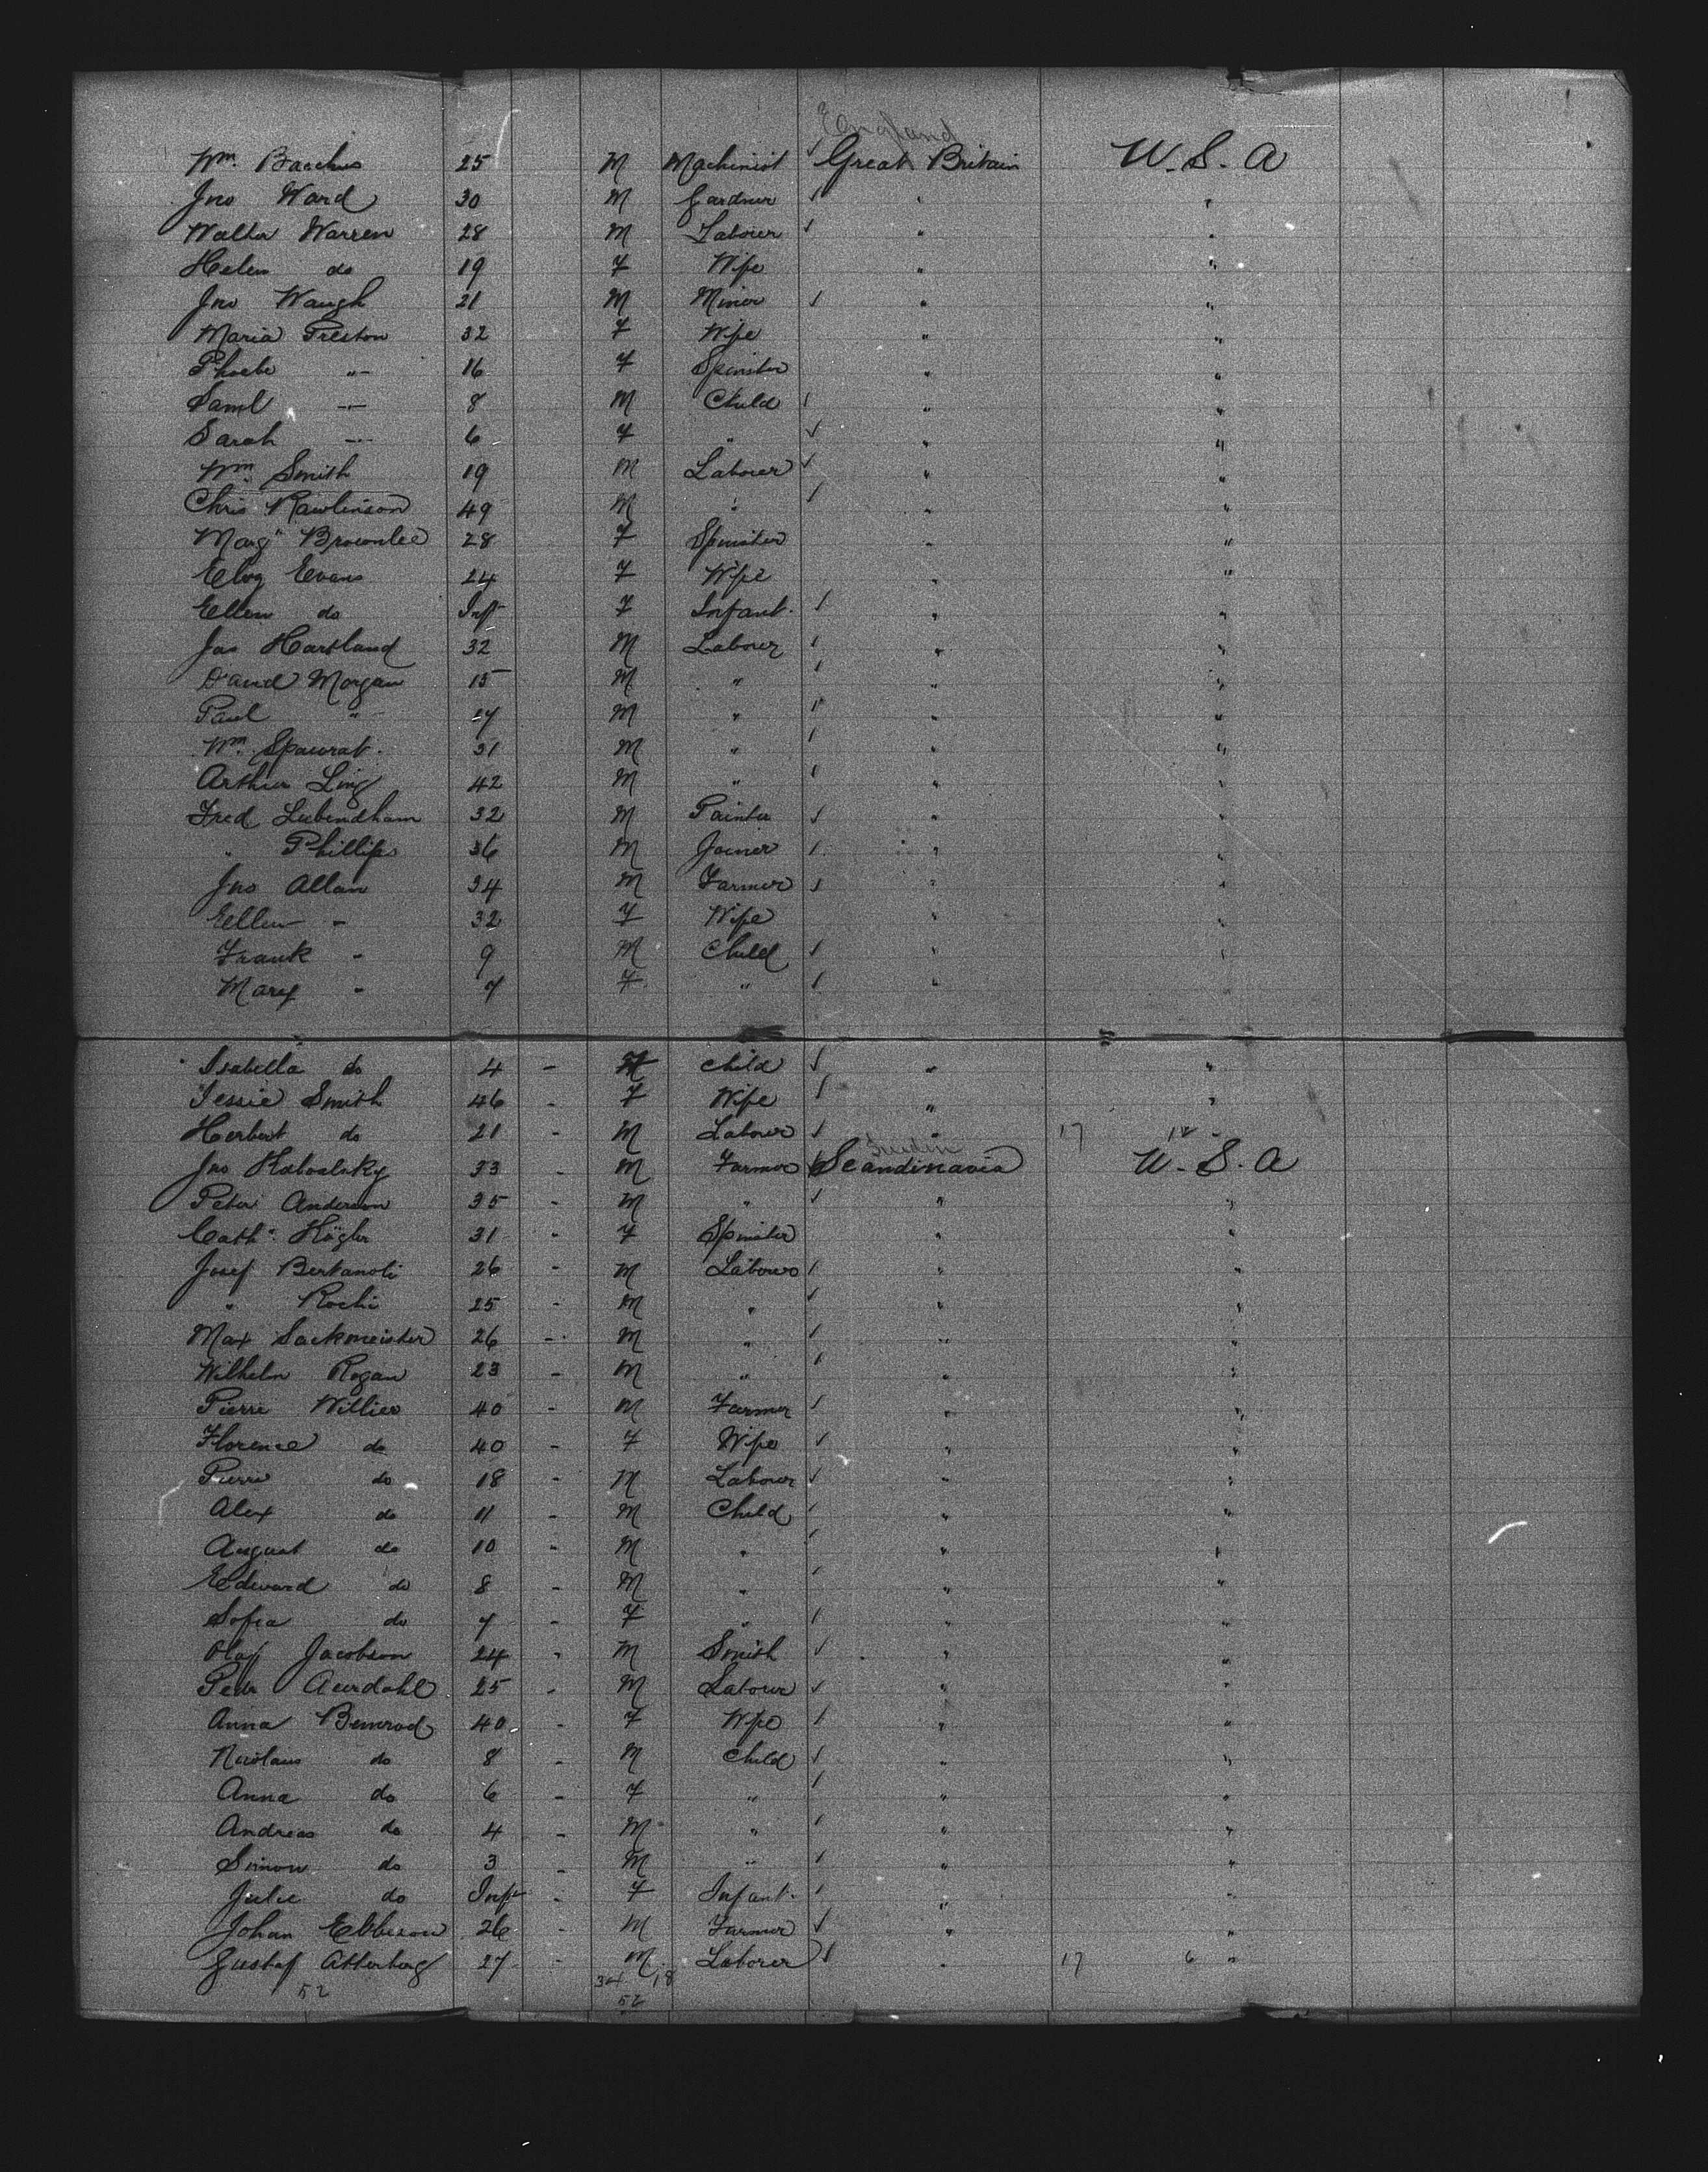 England
Wm. Bacchus 25 M Machinist ✓ Great Britain U.S.A
Jno Ward 30 M Gardner ✓ " "
Walter Warren 28 M Labourer ✓ " "
Helen do 19 F Wife " "
Jno Waugh 21 M Miner ✓ " "
Maria Preston 32 F Wife " "
Phoebe " 16 F Spinster " "
Saml " 8 M Child ✓ " "
Sarah " 6 F " ✓ " "
Wm. Smith 19 M Labourer ✓ " "
Chris Rawlinson 49 M " ✓ " "
Margt Brownlee 28 F Spinster " "
Evans 24 F Wife " "
Ellen do Inf F Infant ✓ " "
Jas Hartland 32 M Labourer ✓ " "
David Morgan 15 M " ✓ " "
Paul " M " ✓ " "
Wm. 31 M " ✓ " "
Arthur Ling 42 M " ✓ " "
Fred Lubendham 32 M Painter ✓ " "
" Phillips 36 M Joiner ✓ " "
Jno Allan 34 M Farmer ✓ " "
Ellen " 32 F Wife " "
Frank " 9 M Child ✓ " "
Mary " 7 F " ✓ " "
Isabella do 4 - F Child ✓ " "
Jessie Smith 46 - F Wife ✓ " "
Herbert do 21 - M Labourer ✓ " 17 18 "
Jno 33 - M Farmer ✓ Scandinavia U.S.A
Peter Anderson 35 - M " ✓ " "
Cath. Kögler 31 - F Spinster " "
Josef Bertanoli 26 - M Labourer ✓ " "
" Rochi 25 - M " ✓ " "
Max Sackmeister 26 - M " ✓ " "
Wilhelm Rogan 23 - M " ✓ " "
Pierre Willier 40 - M Farmer ✓ " "
Florence do 40 - F Wife ✓ " "
Pierre do 18 - M Labourer ✓ " "
Alex do 11 - M Child ✓ " "
August do 10 - M " ✓ " "
Edward do 8 - M " ✓ " "
Sofia do 7 - F " ✓ " "
Olaf Jacobson 24 - M Smith ✓ " "
Peder Aurdahl 25 - M Labourer ✓ " "
Anna Bemrod 40 - F Wife ✓ " "
Nicolaus do 8 - M Child ✓ " "
Anna do 6 - F " ✓ " "
Andreas do 4 - M " ✓ " "
Simon do 3 - M " ✓ " "
Julie do Inft - F Infant ✓ " "
Johan Ebbeson 26 - M Farmer ✓ " "
Gustaf Atterberg 27 - M Laborer ✓ " 17 6 "
52 34 18
52